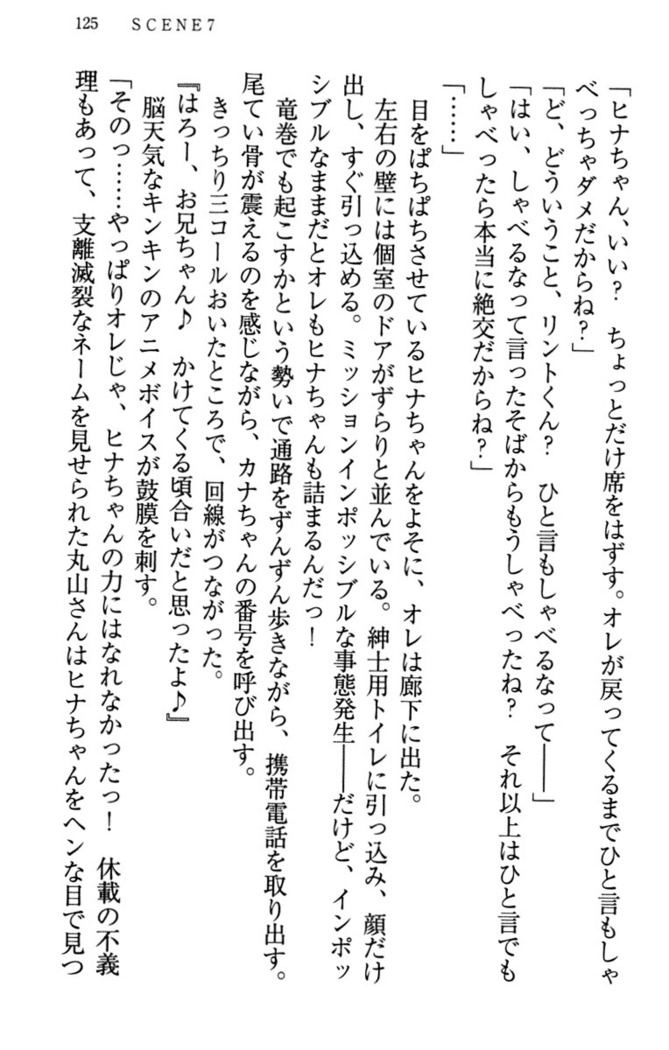 125 SCENE7
「ヒナちゃん、いい？　ちょっとだけ席をはずす。オレが戻ってくるまでひと言もしゃ
べっちゃダメだからね？」
「ど、どういうこと、リントくん？　ひと言もしゃべるなって――」
「はい、しゃべるなって言ったそばからもうしゃべったね？　それ以上はひと言でも
しゃべったら本当に絶交だからね？」
「……」
　目をぱちぱちさせているヒナちゃんをよそに、オレは廊下に出た。
　左右の壁には個室のドアがずらりと並んでいる。紳士用トイレに引っ込み、顔だけ
出し、すぐ引っ込める。ミッションインポッシブルな事態発生――だけど、インポッ
シブルなままだとオレもヒナちゃんも詰まるんだっ！
　竜巻でも起こすかという勢いで通路をずんずん歩きながら、携帯電話を取り出す。
尾てい骨が震えるのを感じながら、カナちゃんの番号を呼び出す。
　きっちり三コールおいたところで、回線がつながった。
『はろー、お兄ちゃん♪　かけてくる頃合いだと思ったよ♪』
　脳天気なキンキンのアニメボイスが鼓膜を刺す。
「そのっ……やっぱりオレじゃ、ヒナちゃんの力にはなれなかったっ！　休載の不義
理もあって、支離滅裂なネームを見せられた丸山さんはヒナちゃんをヘンな目で見つ